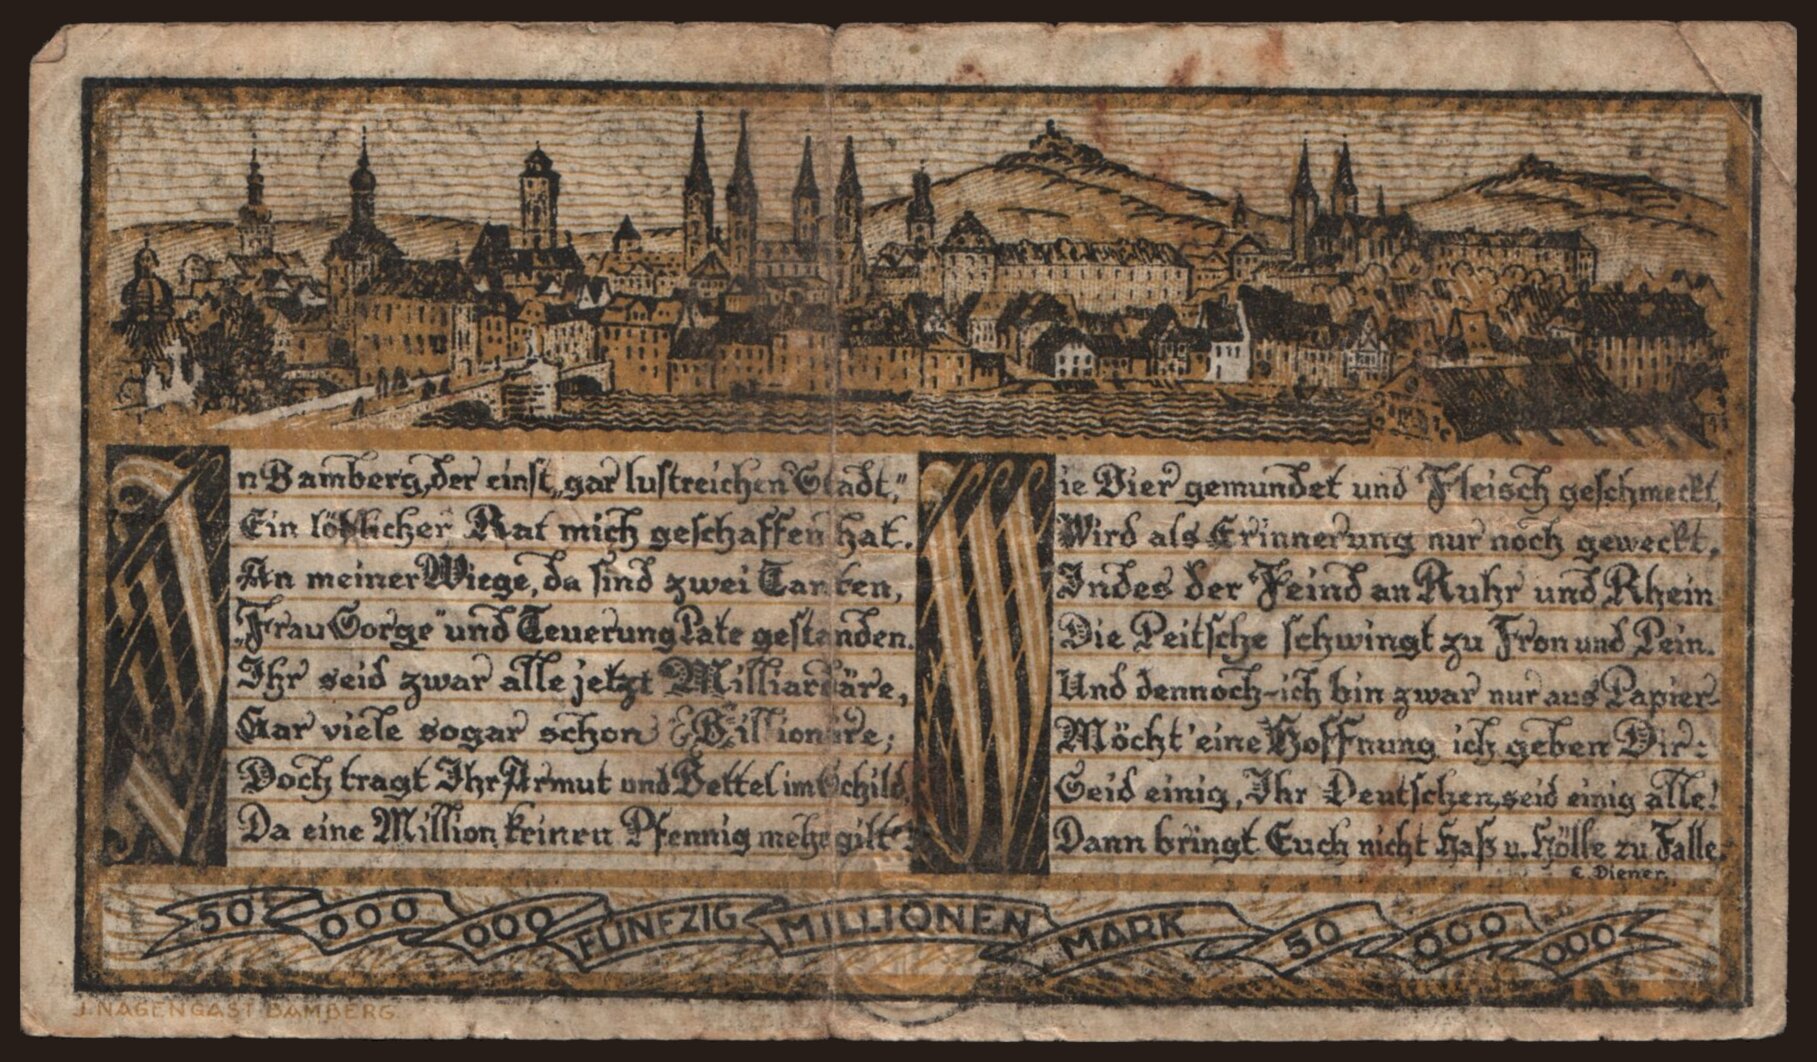 In Bamberg, der einst „gar lustreichen Stadt,"
Ein löblicher Rat mich geschaffen hat.
An meiner Wiege, da sind zwei Tanten,
„Frau Sorge" und Teuerung Pate gestanden.
Ihr seid zwar alle jetzt Milliardäre,
Gar viele sogar schon Billionäre;
Doch tragt Ihr Armut und Bettel im Schild,
Da eine Million keinen Pfennig mehr gilt!
Wie Bier gemundet und Fleisch geschmeckt,
Wird als Erinnerung nur noch geweckt,
Indes der Feind an Ruhr und Rhein
Die Peitsche schwingt zu Fron und Pein.
Und dennoch-ich bin zwar nur aus Papier-
Möcht' eine Hoffnung ich geben Dir:
Seid einig, Ihr Deutschen, seid einig alle!
Dann bringt Euch nicht Haß u. Hölle zu Falle.
E. Diener.
50 000 000 FÜNFZIG MILLIONEN MARK 50 000 000
J. NAGENGAST BAMBERG.